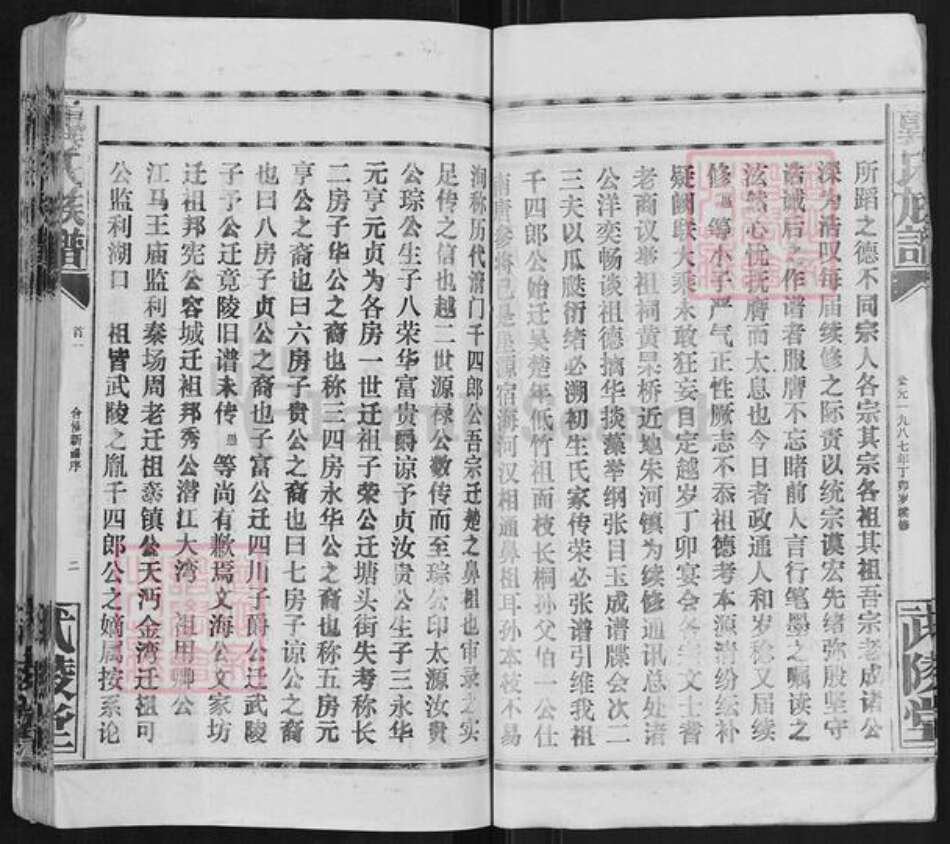 公元一九八七年丁卯岁续修
武陵堂
所蹈之德不同宗人各宗其宗各祖其祖吾宗老成诸公
深为浩叹每届续修之际责以统宗谟宏先绪弥殷坚守
浩诚后之作谱者服膺不忘睹前人言行笔墨之嘱读之
泫然心忧抚膺而太息也今日者政通人和岁稔又届续
修愚等小子严气正性厥志不忝祖德考本源清纷纭补
疑阙联大乘未敢狂妄自定越岁丁卯宴会各宗文士耆
老商议举祖祠黄杲桥近地朱河镇为续修通讯总处诸
公洋奕畅谈祖德摛华掞藻举纲张目玉成谱牒会次二
三夫以瓜瓞衍绪必溯初生氏家传荣必张谱引维我祖
千四郎公始迁吴楚年低竹祖面枝长桐孙父伯一公仕
南唐参将已是星源宿海河汉相通鼻祖耳孙本枝不易
洵称历代清门千四郎公吾宗迁楚之鼻祖也审录之实
足传之信也越二世源禄公数传而至琮公印太源汝贵
公琮公生子八荣华富贵爵谅予贞汝贵公生子三永华
元亨元贞为各房一世迁祖子荣公迁塘头街失考称长
二房子华公之裔也称三四房永华公之裔也称五房元
亨公之裔也曰六房子贵公之裔也曰七房子谅公之裔
也曰八房子贞公之裔也子富公迁四川子爵公迁武陵
子予公迁竟陵旧谱未传愚等尚有歉焉文海公文家坊
迁祖邦宪公容城迁祖邦秀公潜江大湾祖用卿公
江马王庙监利秦场周老迁祖 镇公天沔金湾迁祖可
公监利湖口 祖皆武陵之胤千四郎公之嫡属按系论
氏族谱
首一
合修新谱序
二
武陵堂